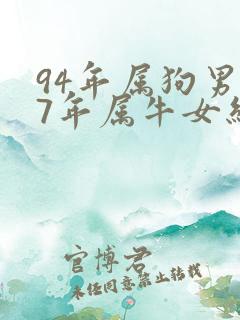 94年属狗男
7年属牛女
官博君
未经同意禁止转载